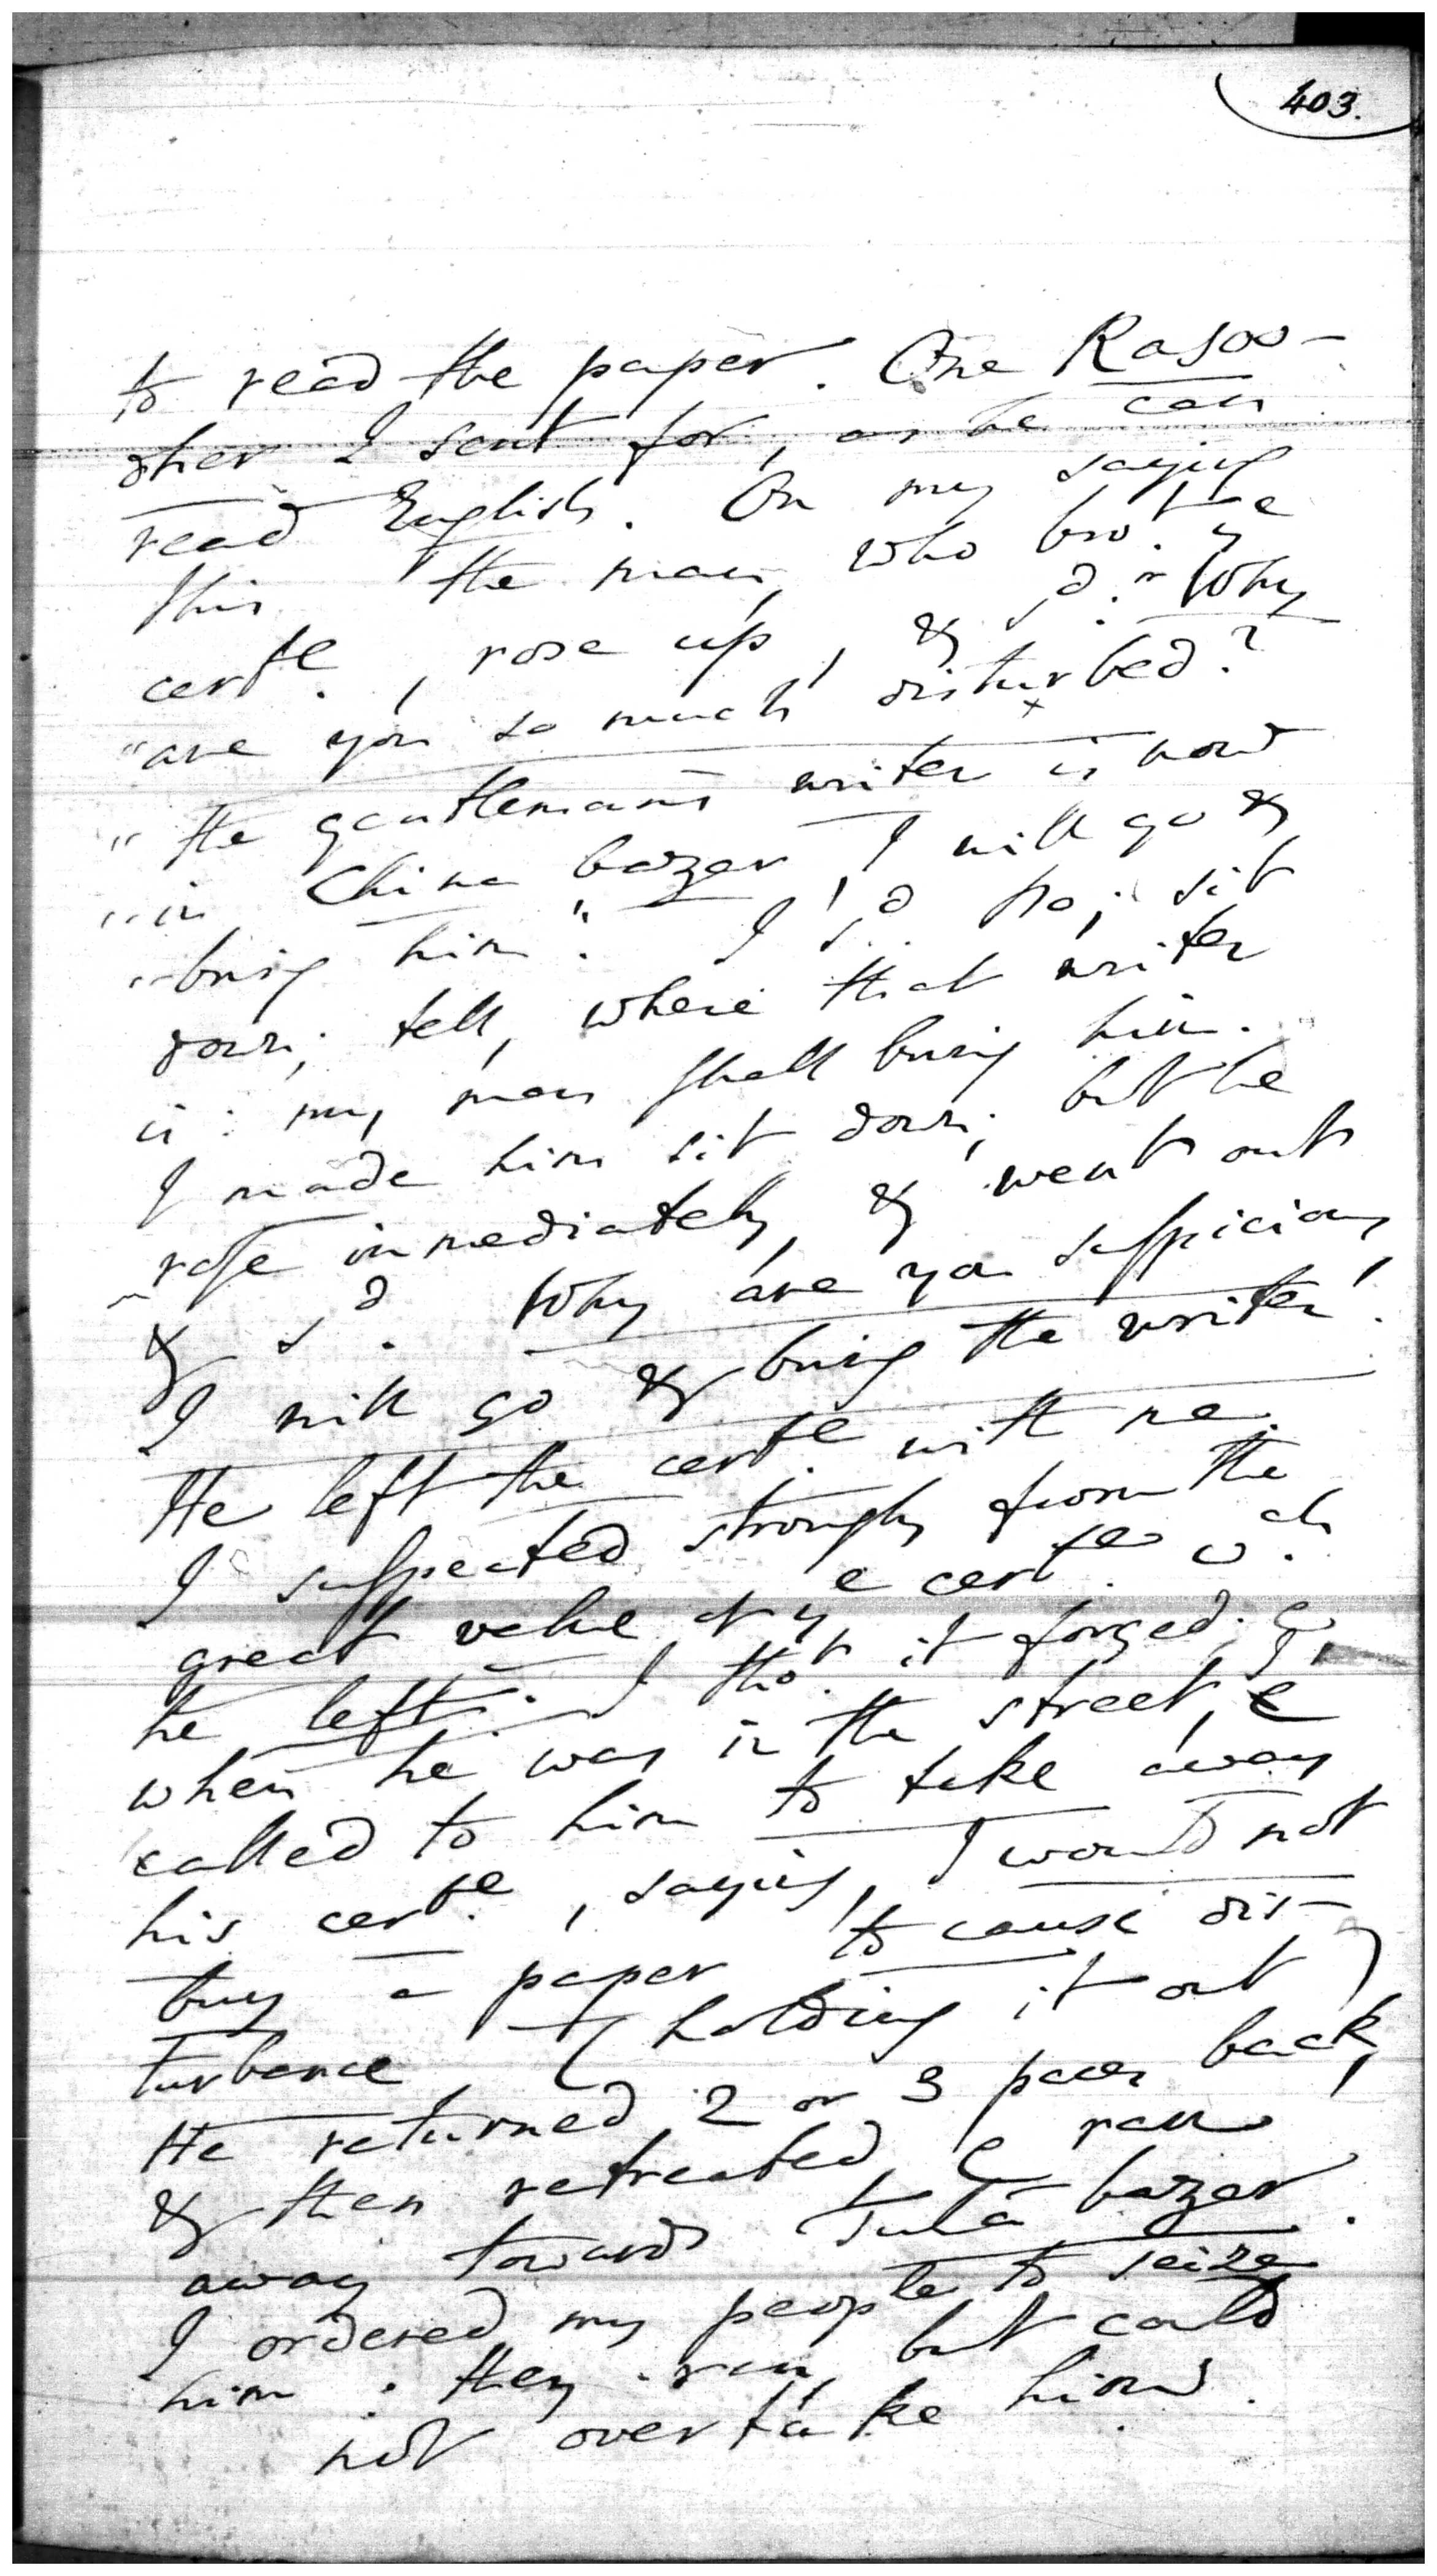 403.
to read the paper. One Rasoo-
ther I sent for, as he can
read English. On my saying
this the man, who bro.t ye
cert.fe, rose up, & s.d "Why
"are you so much disturbed?
"the gentleman's writer is now
"in China bazar, I will go &
"bring him." I s.d no; sit
down; tell, where that writer
is: my man shall bring him.
I made him sit down; but he
rose immediately, & went out
& s.d Why are you suspicious,
I will go & bring the writer.
He left the cert.fe with me.
I suspected strongly from the
great value of ye cert.fe w.ch
he left. I tho.t it forged; &,
when he was in the street, I
called to him to take away
his cert.fe, saying, I would not
buy a paper to cause dis-
turbance, (holding it out)
He returned 2 or 3 paces back,
& then retreated & ran
away towards Tula bazar.
I ordered my people to seize
him: they ran, but could
not overtake him.